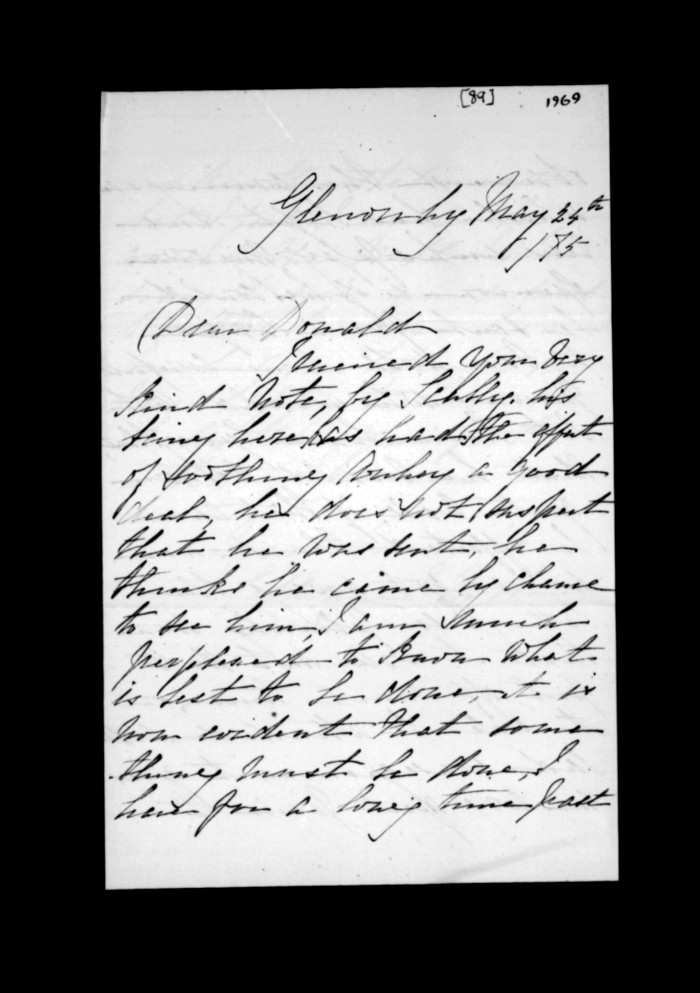 [89] 1969
Glenorchy May 24th
/75
Dear Donald
I received your very
kind note, by Scully. his
being here has had the effect
of soothing a good
deal, he does not suspect
that he was sent, he
thinks he came by chance
to see him, I am much
perplexed to know what
is best to be done, it is
now evident that some
thing must be done, I
have for a long time past